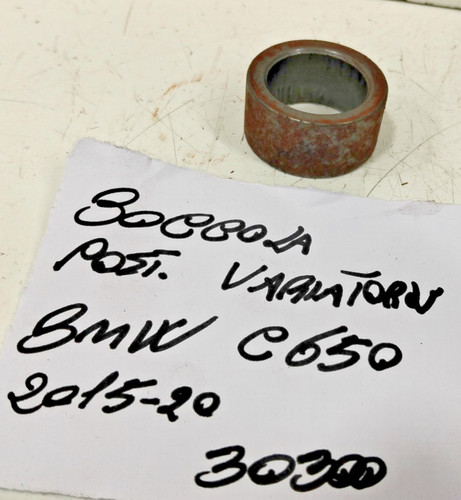 BOCCOLA
POST. VARIATORE
BMW C650
2015-20
30300